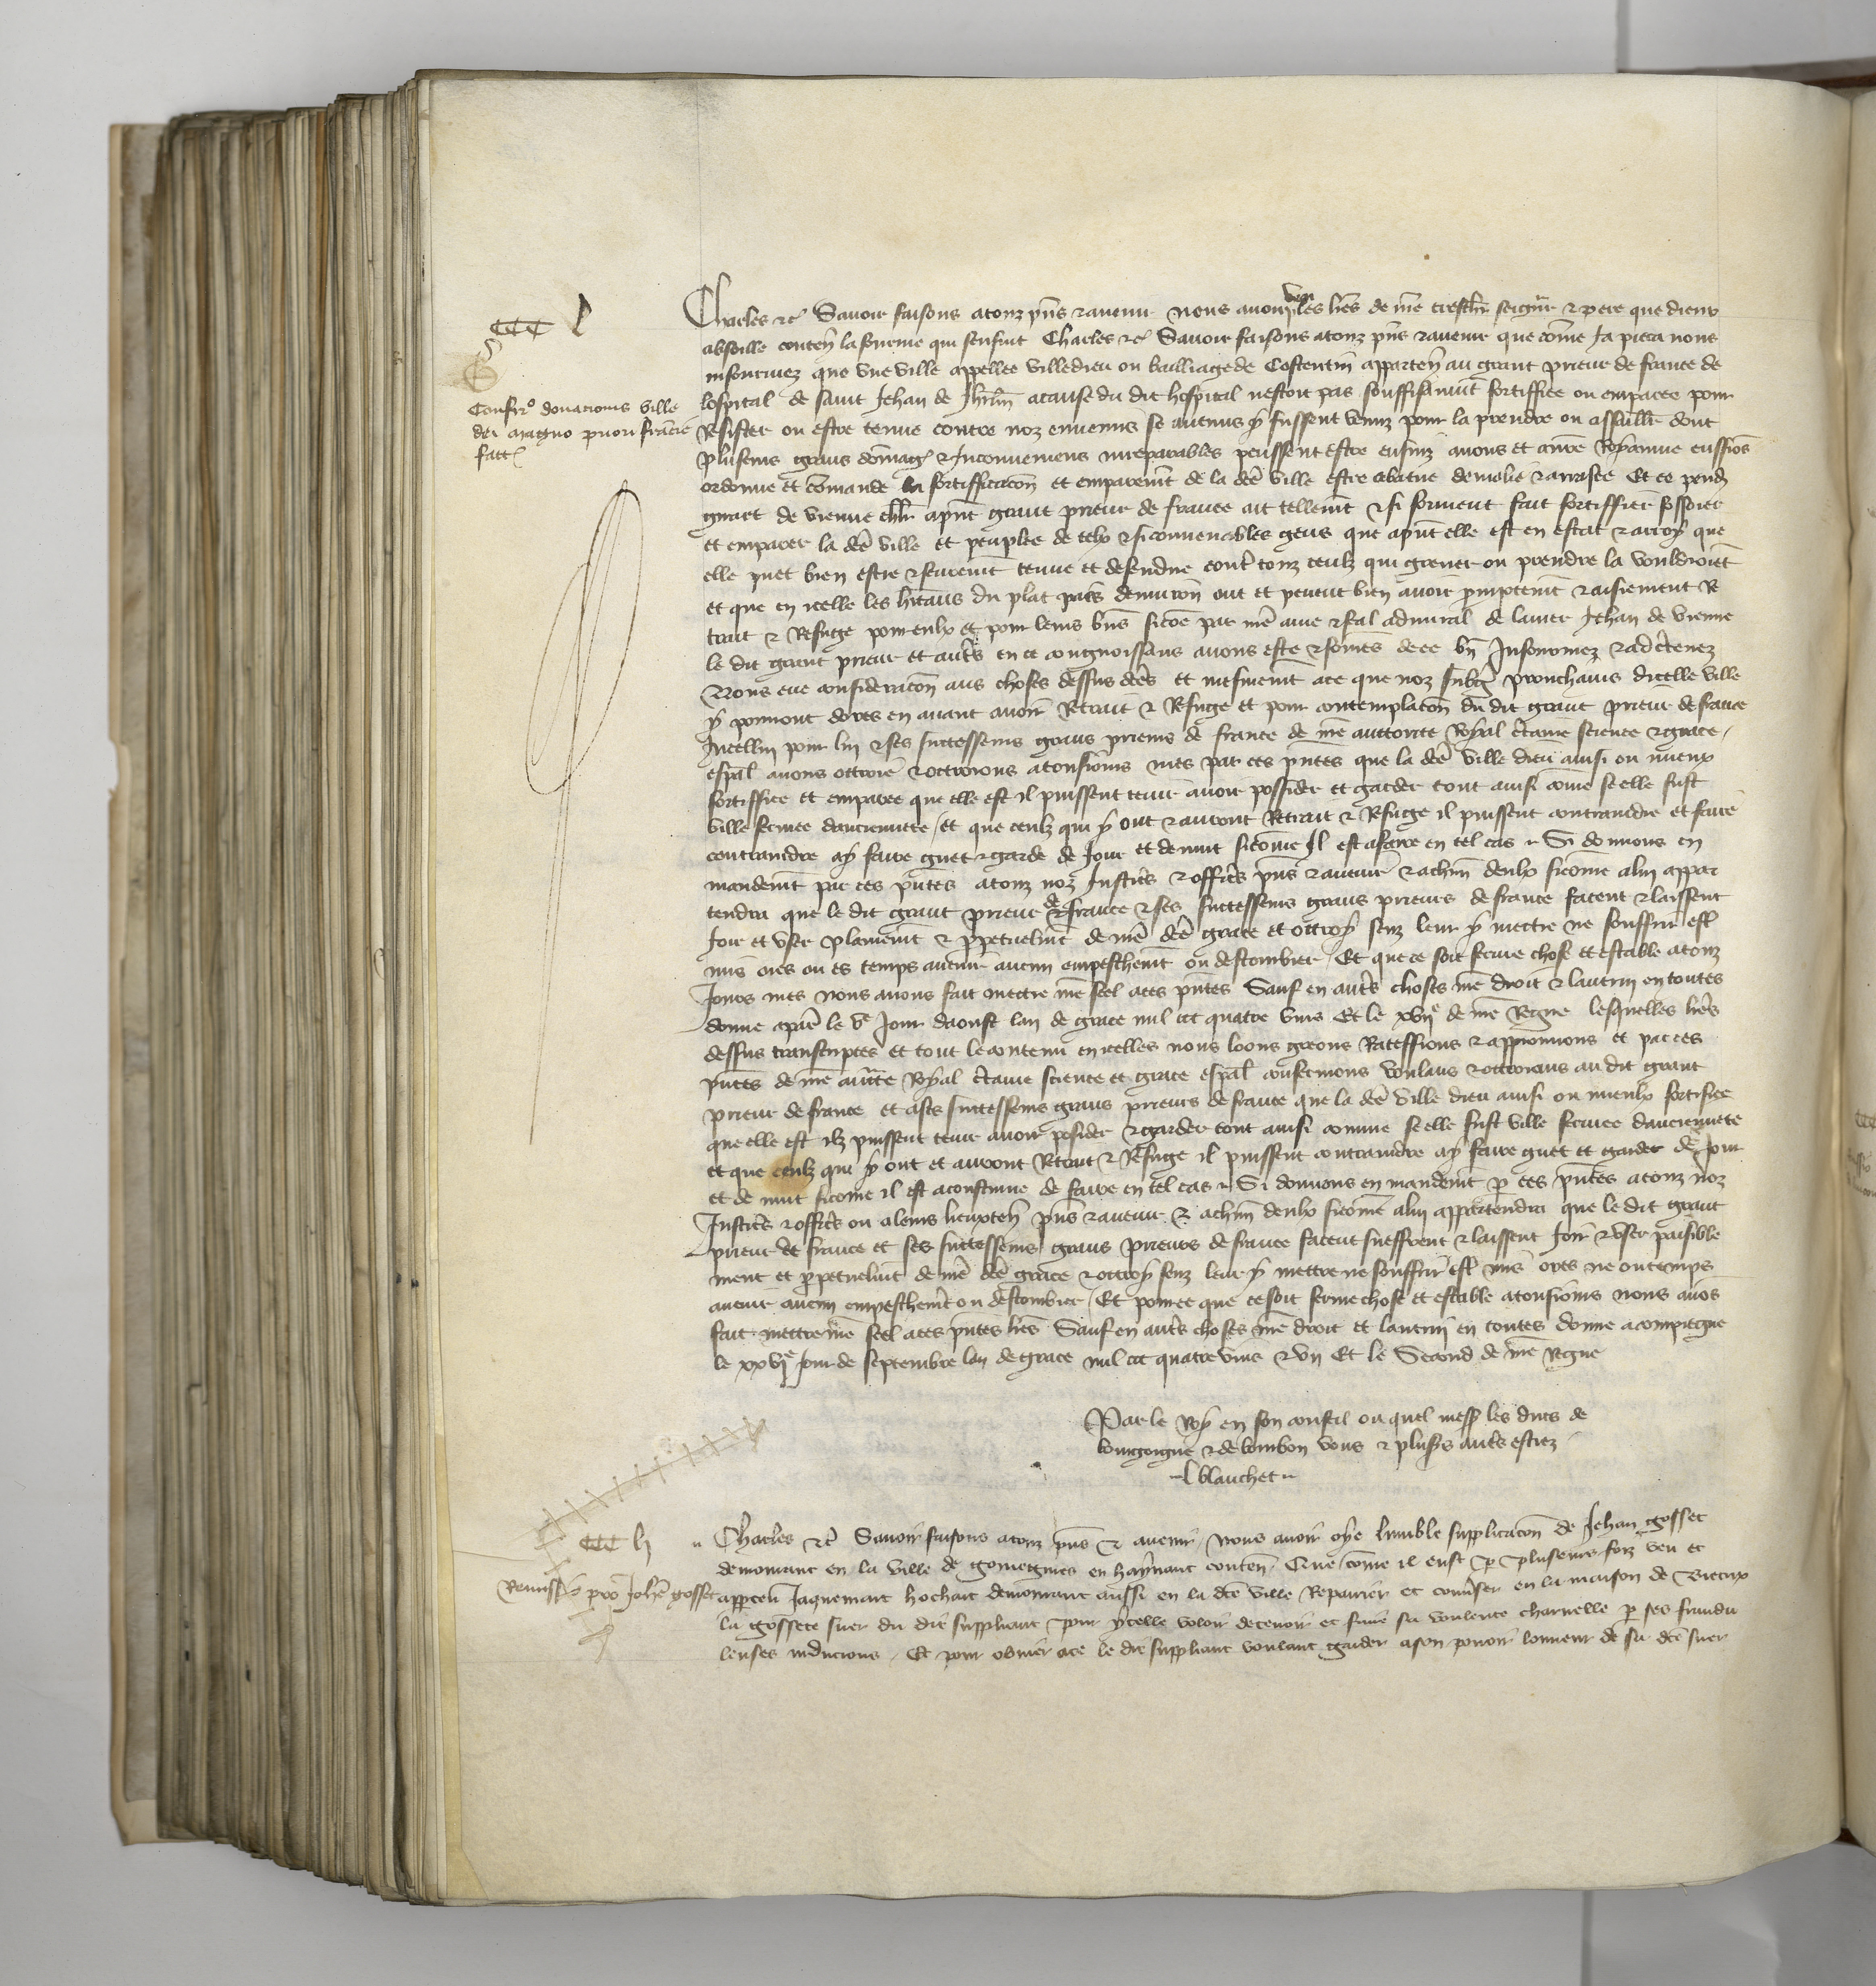 CCC l
Confirmo donacionis ville
dei magno priori francie
facte
Charles etc Savoir faisons a touz pns et avenir nous avoir veu les lres de nre treschier seigneur et pere que dieux
absoille conten la fourme qui sensuit Charles etc Savoir faisons a touz pns et avenir que come ja pieca nous
infourmez que une ville appellee villedieu ou bailliage de Costentin apparten au grant prieur de france de
lospital de saint Jehan de Jhrlm a cause du dit hospital nestoit pas souffisamment fortiffiee ou emparee pour
Resister ou estre tenue contre noz ennemis se aucuns y fussent venuz pour la prendre ou assaillir dont
plusieurs grans domages et Inconveniens irreparables peussent estre ensuiz a nous et a nre Royaume eussions
ordonne et comande la fortifficacion et emparement de la dce ville estre abatue demolie et arrasee Et ce pend
guart de vienne chlr a pnt grant prieur de france ait tellement et si forment fait fortiffier fossoier
et emparer la dce ville et peuplee de telx et si convenables gens que apnt elle est en estat et arroy que
elle puet bien estre et seurement tenue et defendue contre touz ceulz qui grever ou prendre la vouldroient
et que en icelle les hitans du plat pais denviron ont et peuent bien avoir promptement et aisiement Re
trait et Refuge pour eulx et pour leurs biens sicoe par nre ame et feal admiral de la mer Jehan de vienne
le dit grant prieur et autres en ce congnoissans avons este et somes de ce bn Infourmez et adcertenez
Nous eue consideracion aus choses dessus dces et mesmement a ce que noz subgiez prouchains dicelle ville
y pourront dores en avant avoir Retrait et Refuge et pour contemplacion du dit grant prieur de france
Icellui pour lui et ses successeurs grans prieurs de france de nre auctorite Royal certaine science et grace
espal avons ottroie et ottroions a tousiours mes par ces pntes que la dce ville dieu ainsi ou mieux
fortiffiee et emparee que elle est il puissent tenir avoir possider et garder tout ainsi come se elle fust
ville fermee danciennete / et que ceulz qui y ont et auront Retrait et Refuge il puissent contraindre et faire
contraindre a y faire guet et garde de jour et de nuit sicome Il est a faire en tel cas Si donnons en
mandement par ces pntes a touz noz Justiciers et officiers pns et avenir et a chm deulx sicome a lui appar
tendra que le dit grant prieur de france et ses successeurs grans prieurs de france facent et laissent
Joir et user plainement et ppetuelmt de nre dce grace et ottroy senz leur y mectre ne souffrir estre
mis ores ou es temps avenir aucun empeschement ou destourbier / Et que ce soit ferme chose et estable a touz
Jours mes Nous avons fait mectre nre seel a ces pntes Sauf en autres choses nre droit et lautrui en toutes
donne a paris le ve Jour daoust lan de grace mil ccc quatre vins Et le xviie de nre Regne lesquelles lres
dessus transcriptes et tout le contenu en icelles nous loons greons Rateffions et approuvons et par ces
pntes de nre aucte Royal certaine science et grace espal confermons voulans et ottroians au dit grant
prieur de france et a ses successeurs grans prieurs de france que la dce ville dieu ainsi ou mieulx fortifiee
que elle est ilz puissent tenir avoir posider et garder tout ainsi comme se elle fust ville fermee danciennete
et que ceulz qui y ont et auront Retrait et Refuge il puissent contraindre a y faire guet et garder de jour
et de nuit sicome il est acoustume de faire en tel cas Si donnons en mandement p ces pntes a touz noz
Justiciers et officiers ou a leurs lieuxten pns et avenir et a chm deulx sicome a lui appartendra que le dit grant
prieur de france et ses successeurs grans prieurs de france facent sueffrent et laissent Joir et user paisible
ment et ppetuelmt de nre dce grace et ottroy senz leur y mettre ne souffrir estre mis ores ne ou temps
avenir aucun empeschemt ou destourbier / Et pour ce que ce soit ferme chose et estable a tousiours nous avons
fait mettre nre seel a ces pntes lres Sauf en autres choses nre droit et lautrui en toutes donne a compiegne
le xxvie jour de septembre lan de grace mil ccc quatre vins et un Et le Second de nre Regne
Par le Roy en son conseil ou quel mess les ducs de
bourgoigne et de bourbon vous et plusrs autres estiez
L blanchet
CCC h
Remissio pro Johe gosset
Charles etc Savoir faisons a touz pns et avenir / Nous avoir oye lumble supplicacon de Jehan gosset
demourant en la ville de gomegnies en haynaut conten / Que come il eust p plusieurs foiz veu et
apperceu Jaquemart hochart demourant aussi en la dce ville Repairier et converser en la maison de
la gossete suer du dit suppliant pour ycelle voloir decevoir et faire sa voulente charnelle p ses fraudu
lenses inducions / Et pour obvier a ce le dit suppliant voulant garder a son povoir lonneur de sa dce suer